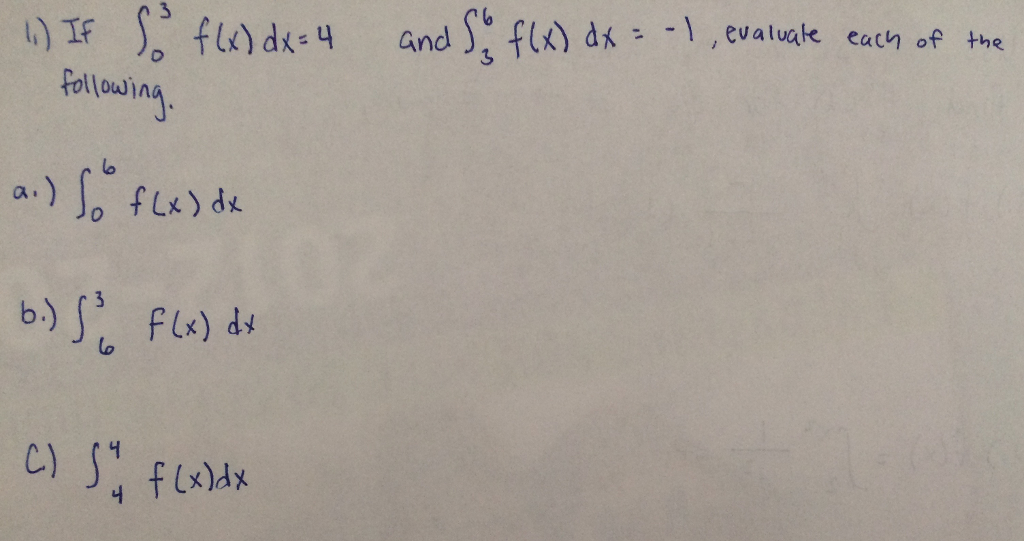 1.) If ∫₀³ f(x) dx = 4 and ∫₃⁶ f(x) dx = -1, evaluate each of the
following.
a.) ∫₀⁶ f(x) dx
b.) ∫₆³ f(x) dx
C.) ∫₄⁴ f(x)dx